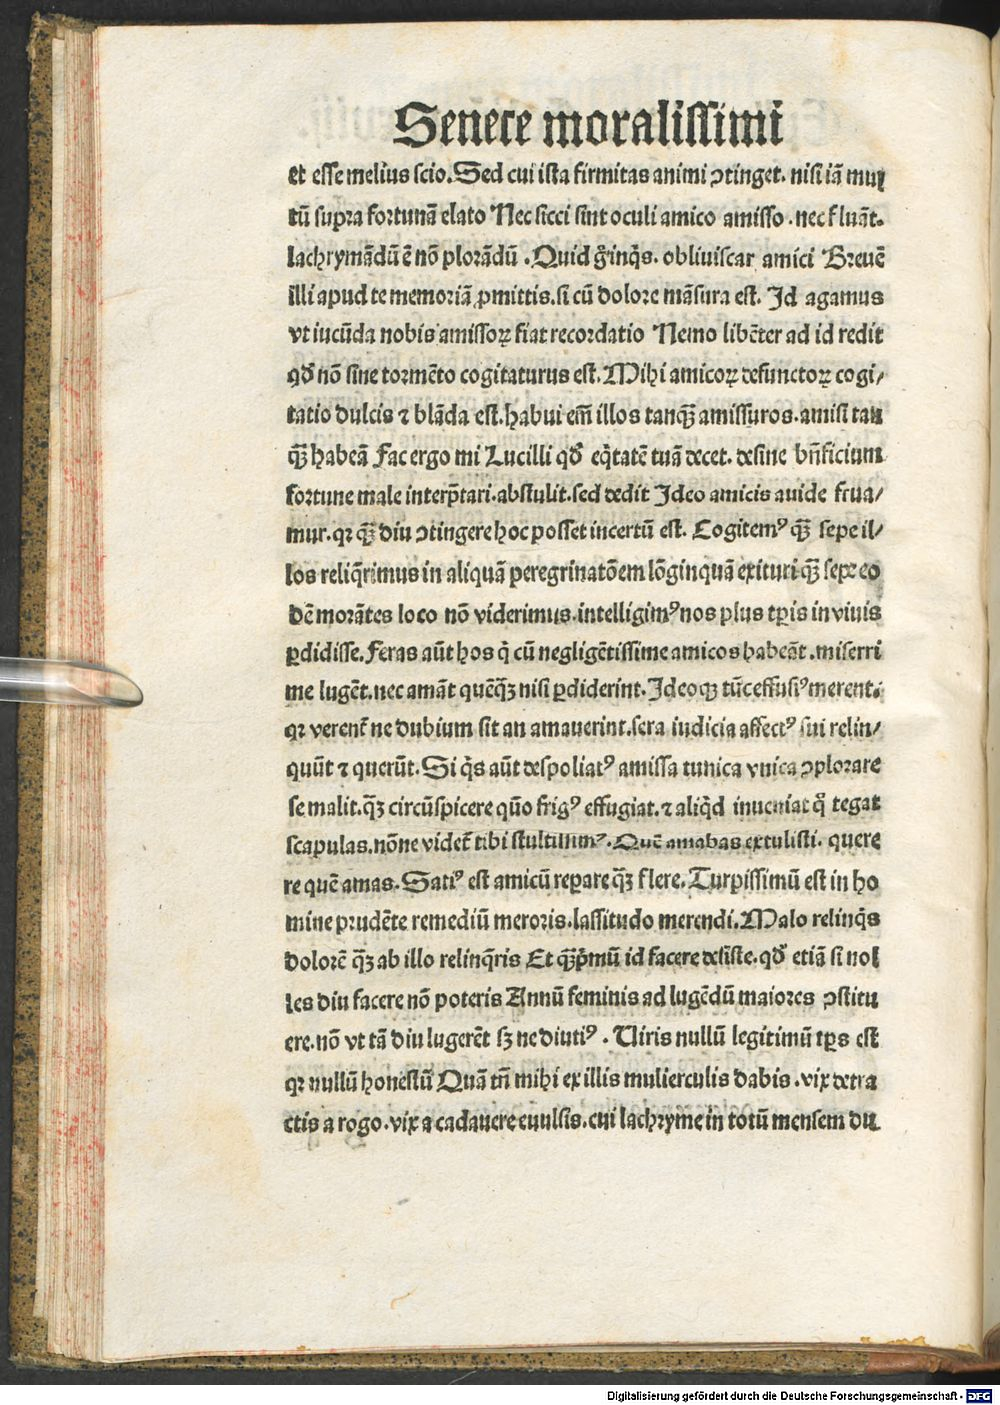 Senece moralissimi
et esse melius scio. Sed cui ista firmitas animi ↄtinget. nisi iã mul
tũ supra fortunã elato Nec sicci sint oculi amico amisso. nec fluãt.
lachrymãdũ ẽ nõ plorãdũ. Quid g̃ inq̃s. obliuiscar amici Breuẽ
illi apud te memoriã ꝓmittis. si cũ dolore mãsura est. Id agamus
vt iucũda nobis amissoꝝ fiat recordatio Nemo libẽter ad id redit
qđ nõ sine tormẽto cogitaturus est. Mihi amicoꝝ defunctoꝝ cogi/
tatio dulcis ⁊ blãda est. habui em̃ illos tanqꝫ̃ amissuros. amisi tan
qꝫ̃ habeã Fac ergo mi Lucilli qđ eq̃tatẽ tuã decet. desine bñficium
fortune male interp̃tari. abstulit. sed dedit Ideo amicis auide frua/
mur. qꝛ qꝫ̃ diu ↄtingere hoc posset incertũ est. Cogitemꝰ qꝫ̃ sepe il/
los reliq̃rimus in aliquã peregrinatõem lõginquã exituri qꝫ̃ sepe eo
dẽ morãtes loco nõ viderimus. intelligimꝰ nos plus tꝑis in viuis
ꝑdidisse. Feras aũt hos q̃ cũ negligẽtissime amicos habeãt. miserri
me lugẽt. nec amãt quẽqꝫ̃ nisi ꝑdiderint. Ideoqꝫ tũc effusiꝰ merent.
qꝛ verent̃ ne dubium sit an amauerint. sera iudicia affectꝰ sui relin/
quũt ⁊ querũt. Si q̃s aũt despoliatꝰ amissa tunica vnica ↄplorare
se malit. qꝫ̃ circũspicere quõ frigꝰ effugiat. ⁊ aliq̃d inueniat q̊ tegat
scapulas. nõne videt̃ tibi stultissimꝰ. Quẽ amabas extulisti. quere
re quẽ amas. Satiꝰ est amicũ reꝑare qꝫ̃ flere. Turpissimũ est in ho
mine prudẽte remediũ meroris. lassitudo merendi. Malo relinq̃s
dolorẽ qꝫ̃ ab illo relinq̃ris Et qꝫ̃p̃mũ id facere desiste. qđ etiã si nol
les diu facere nõ poteris Annũ feminis ad lugẽdũ maiores ↄstitu
ere. nõ vt tã diu lugerẽt sꝫ ne diutiꝰ. Uiris nullũ legitimũ tꝑs est
qꝛ nullũ honestũ Quã tñ mihi ex illis mulierculis dabis. vix detra
ctis a rogo. vix a cadauere euulsis. cui lachryme in totũ mensem du
Digitalisierung gefördert durch die Deutsche Forschungsgemeinschaft - DFG